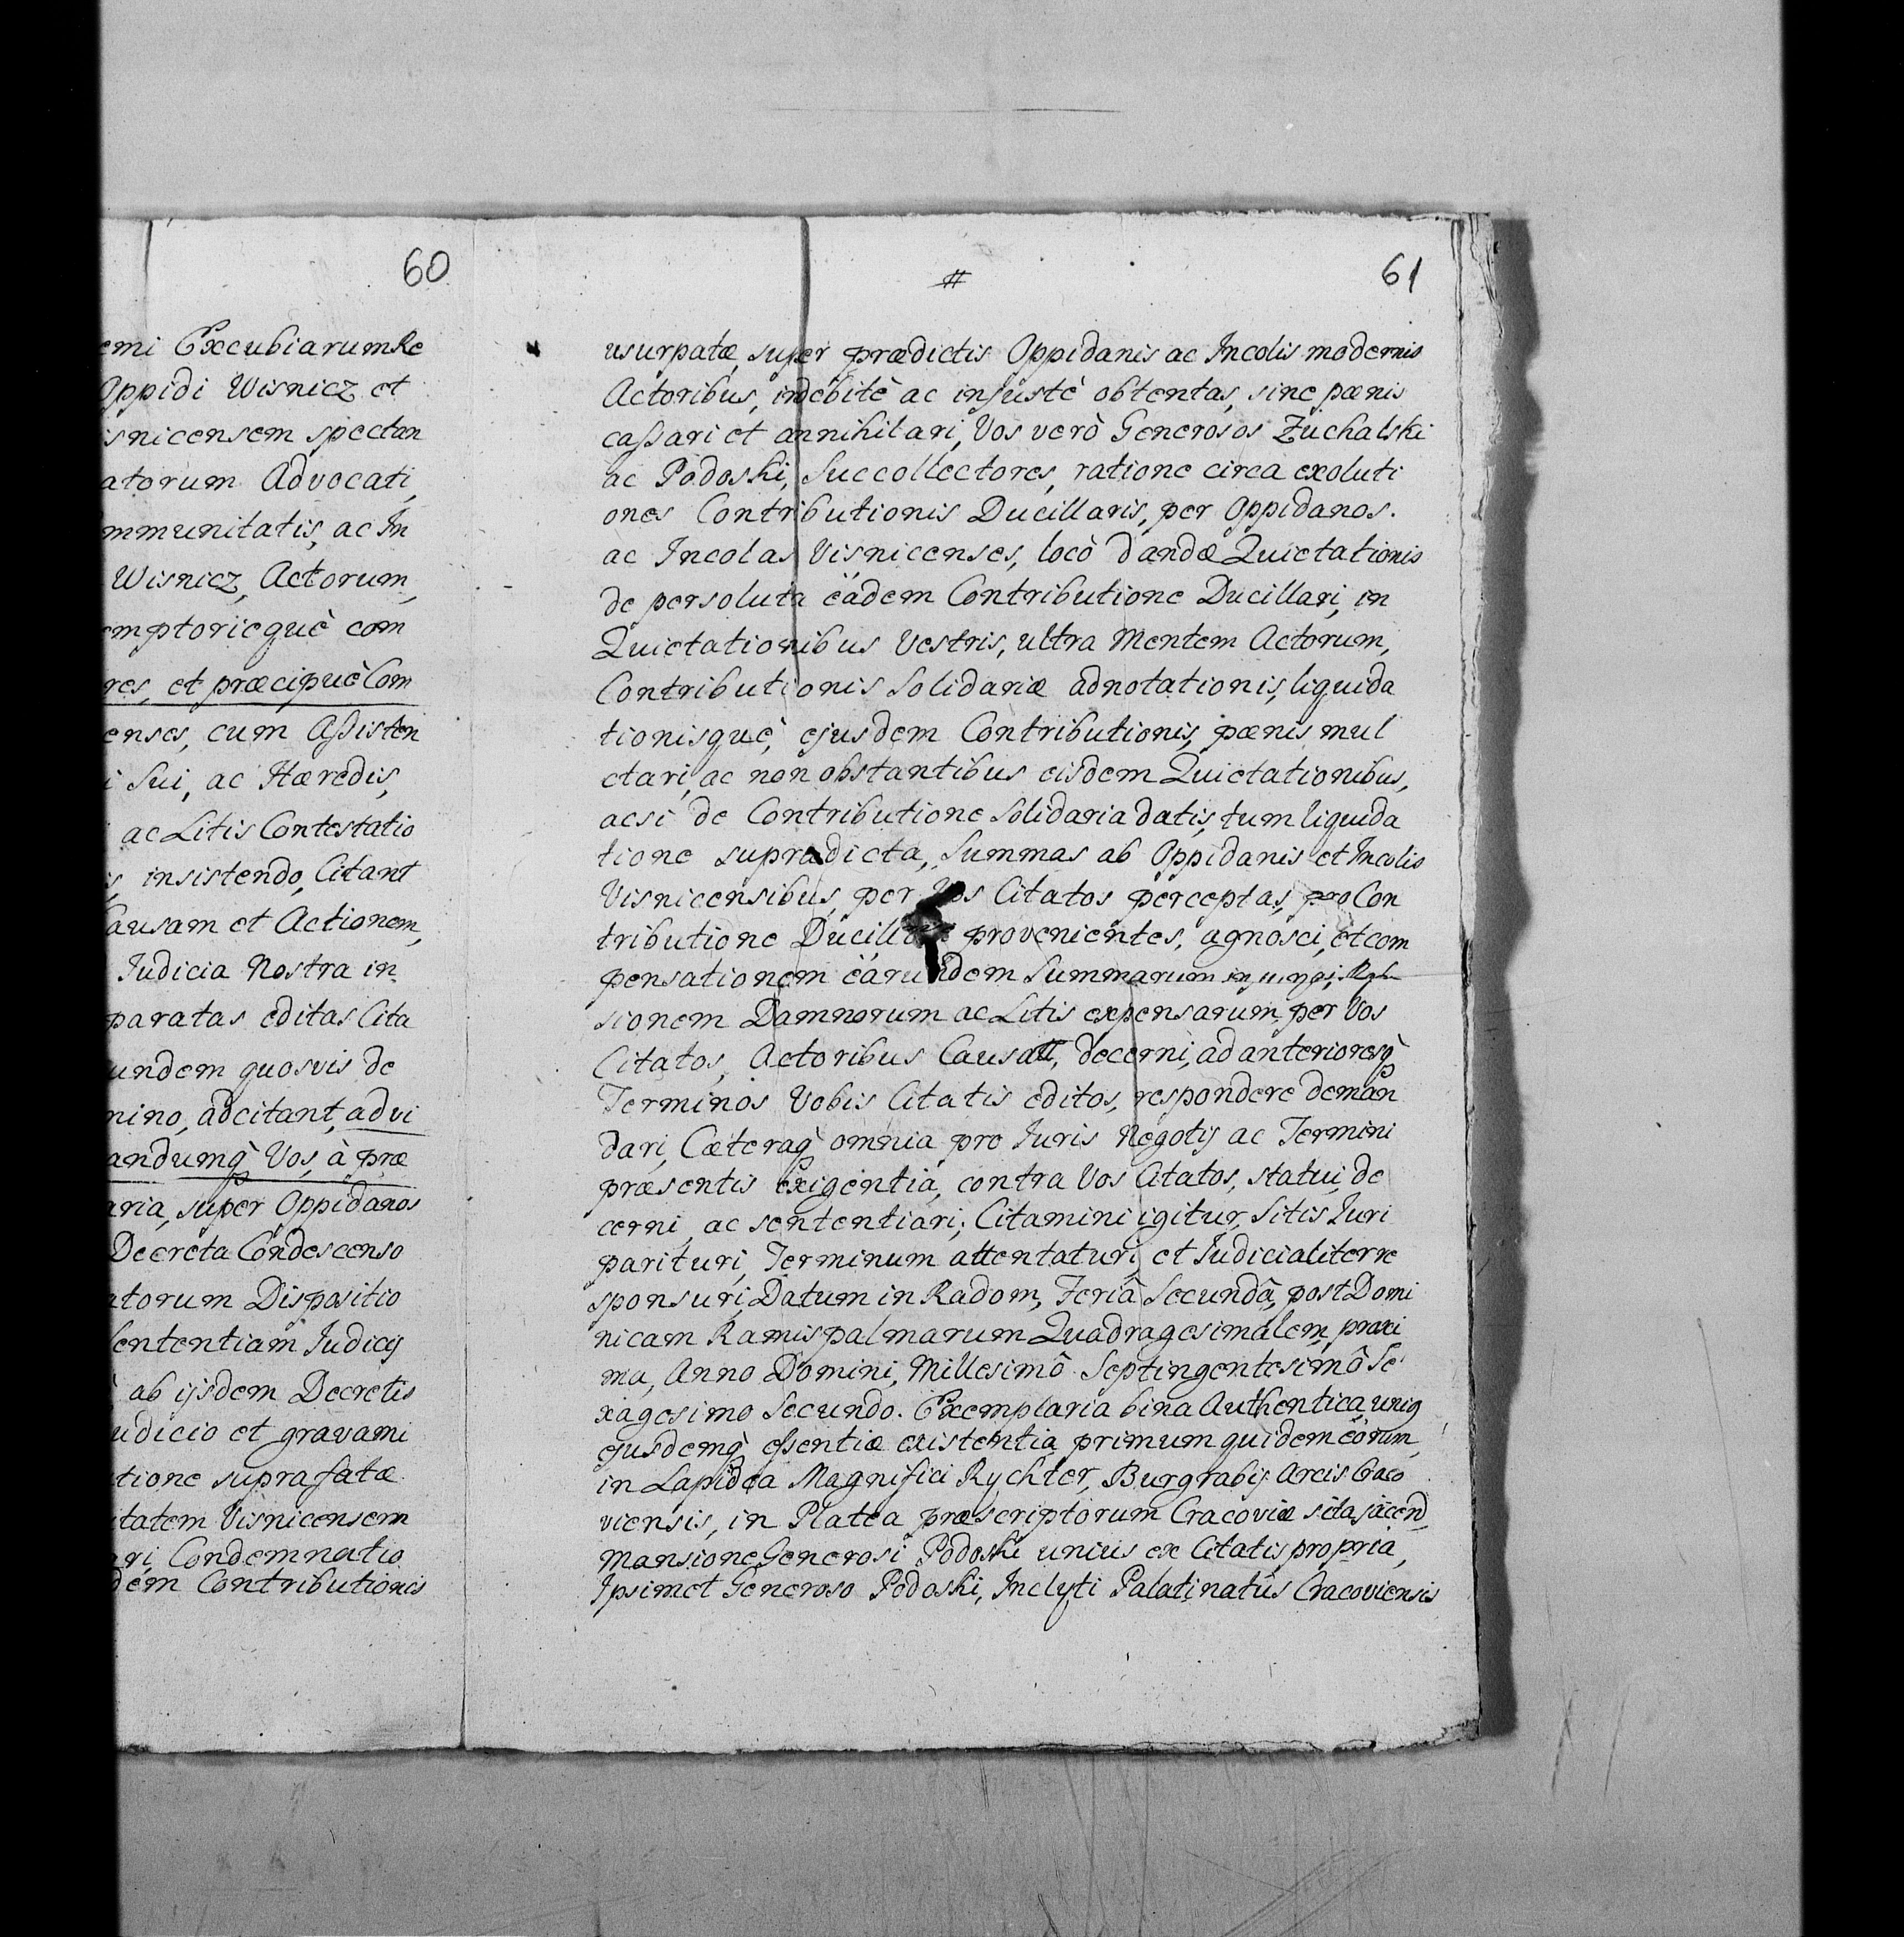 60
emi Excubiarum Re
Oppidi Wisnicz et
isnicensem spectan
atorum Advocati,
mmunitatis, ac In
Wisnicz, Actorum,
emptorieque com
res, et præcipuè Com
enses, cum Assisten
i Sui, ac Hæredis,
ac Litis Contestatio
s, insistendo, Citant
ausam et Actionem,
Judicia Nostra in
paratas editas Cita
undem quosvis de
mino, adcitant, ad vi
andumq Vos, à præ
aria, super Oppidanos
Decreta Condescenso
atorum Dispositio
sententiam Judicij
ab ijsdem Decretis
udicio et gravami
tione suprafatæ
itatem Visnicensem
ari, Condemnatio
dem Contributionis
#
61
usurpatæ, super prædictis Oppidanis ac Incolis modernis
Actoribus, indebitè ac injustè obtentas, sine pænis
cassari et annihilari, Vos verò Generosos Zuchalski
ac Podoski, Succollectores, ratione circa exoluti
ones Contributionis Ducillaris, per Oppidanos.
ac Incolas Visnicenses, locò dandæ Quietationis
de persoluta eädem Contributione Ducillari, in
Quietationibus Vestris, ultra Mentem Actorum,
Contributionis Solidariæ adnotationis, liquida
tionisquè, ejusdem Contributionis, pænis mul
ctari, ac non obstantibus eisdem Quietationibus,
acsi de Contributione Solidaria datis, tum liquida
tione supradicta, Summas ab Oppidanis et Incolis
Visnicensibus, per Vos Citatos perceptas, pro Con
tributione Ducillari provenientes, agnosci, et com
pensationem eärundem Summarum injungi,
sionem Damnorum ac Litis expensarum, per Vos
Citatos, Actoribus Causatt, decerni, ad anterioresq
Terminos Vobis Citatis editos, respondere deman
dari, Cæteraq omnia pro Juris Negotij ac Termini
præsentis exigentia, contra Vos Citatos, statui, de
cerni, ac sententiari; Citamini igitur, Sitis Juri
parituri, Terminum attentaturi, et Judicialiter re
sponsuri, Datum in Radom, Feriâ Secundâ, post Domi
nicam Ramispalmarum Quadragesimalem, proxi
ma, Anno Domini, Millesimô Septingentesimô Se
xagesimo Secundo. Exemplaria bina Authentica, uniq
ejusdemq essentiæ existentia, primum quidem eörum,
in Lapidea Magnifici Rychter, Burgrabij Arcis Craco
viensis, in Platea præscriptorum Cracoviæ sita jäcend,
Mansione Generosi Podoski unius ex Citatis, propria,
Ipsimet Generoso Podoski, Inclyti Palatinatûs Cracoviensis